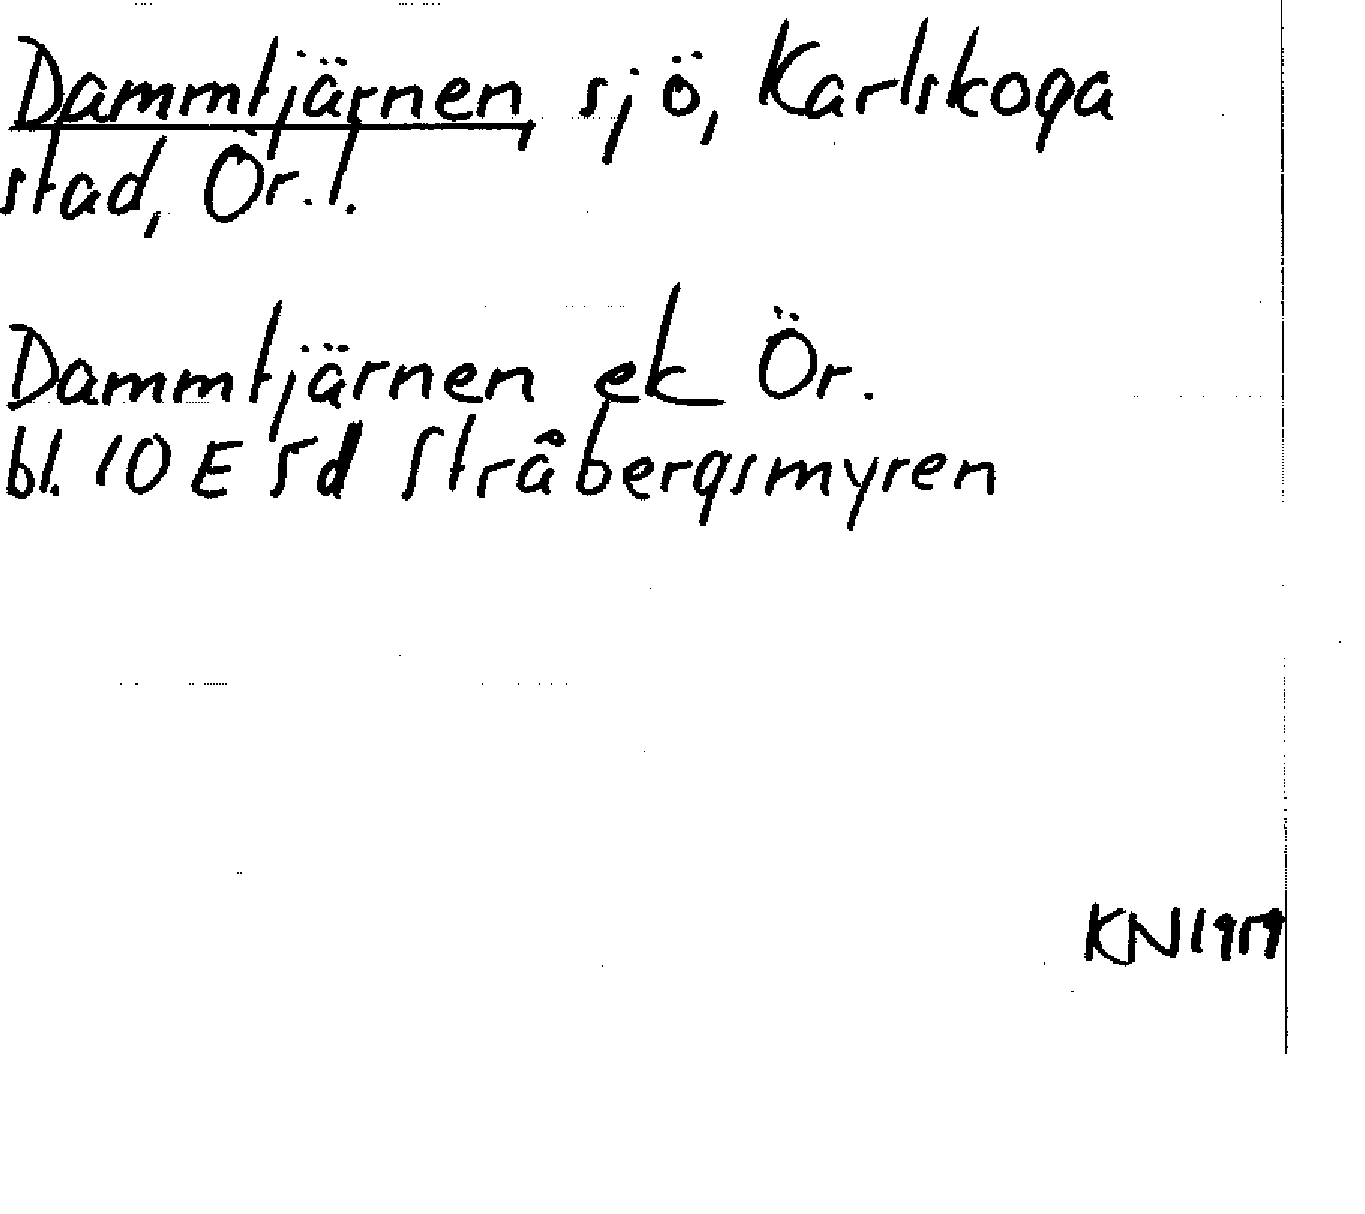 Dammtjärnen, sjö, Karlskoga
stad, Ör. l.
Dammtjärnen ek Ör.
bl. 10 E 5d Stråbergsmyren
KN 1959